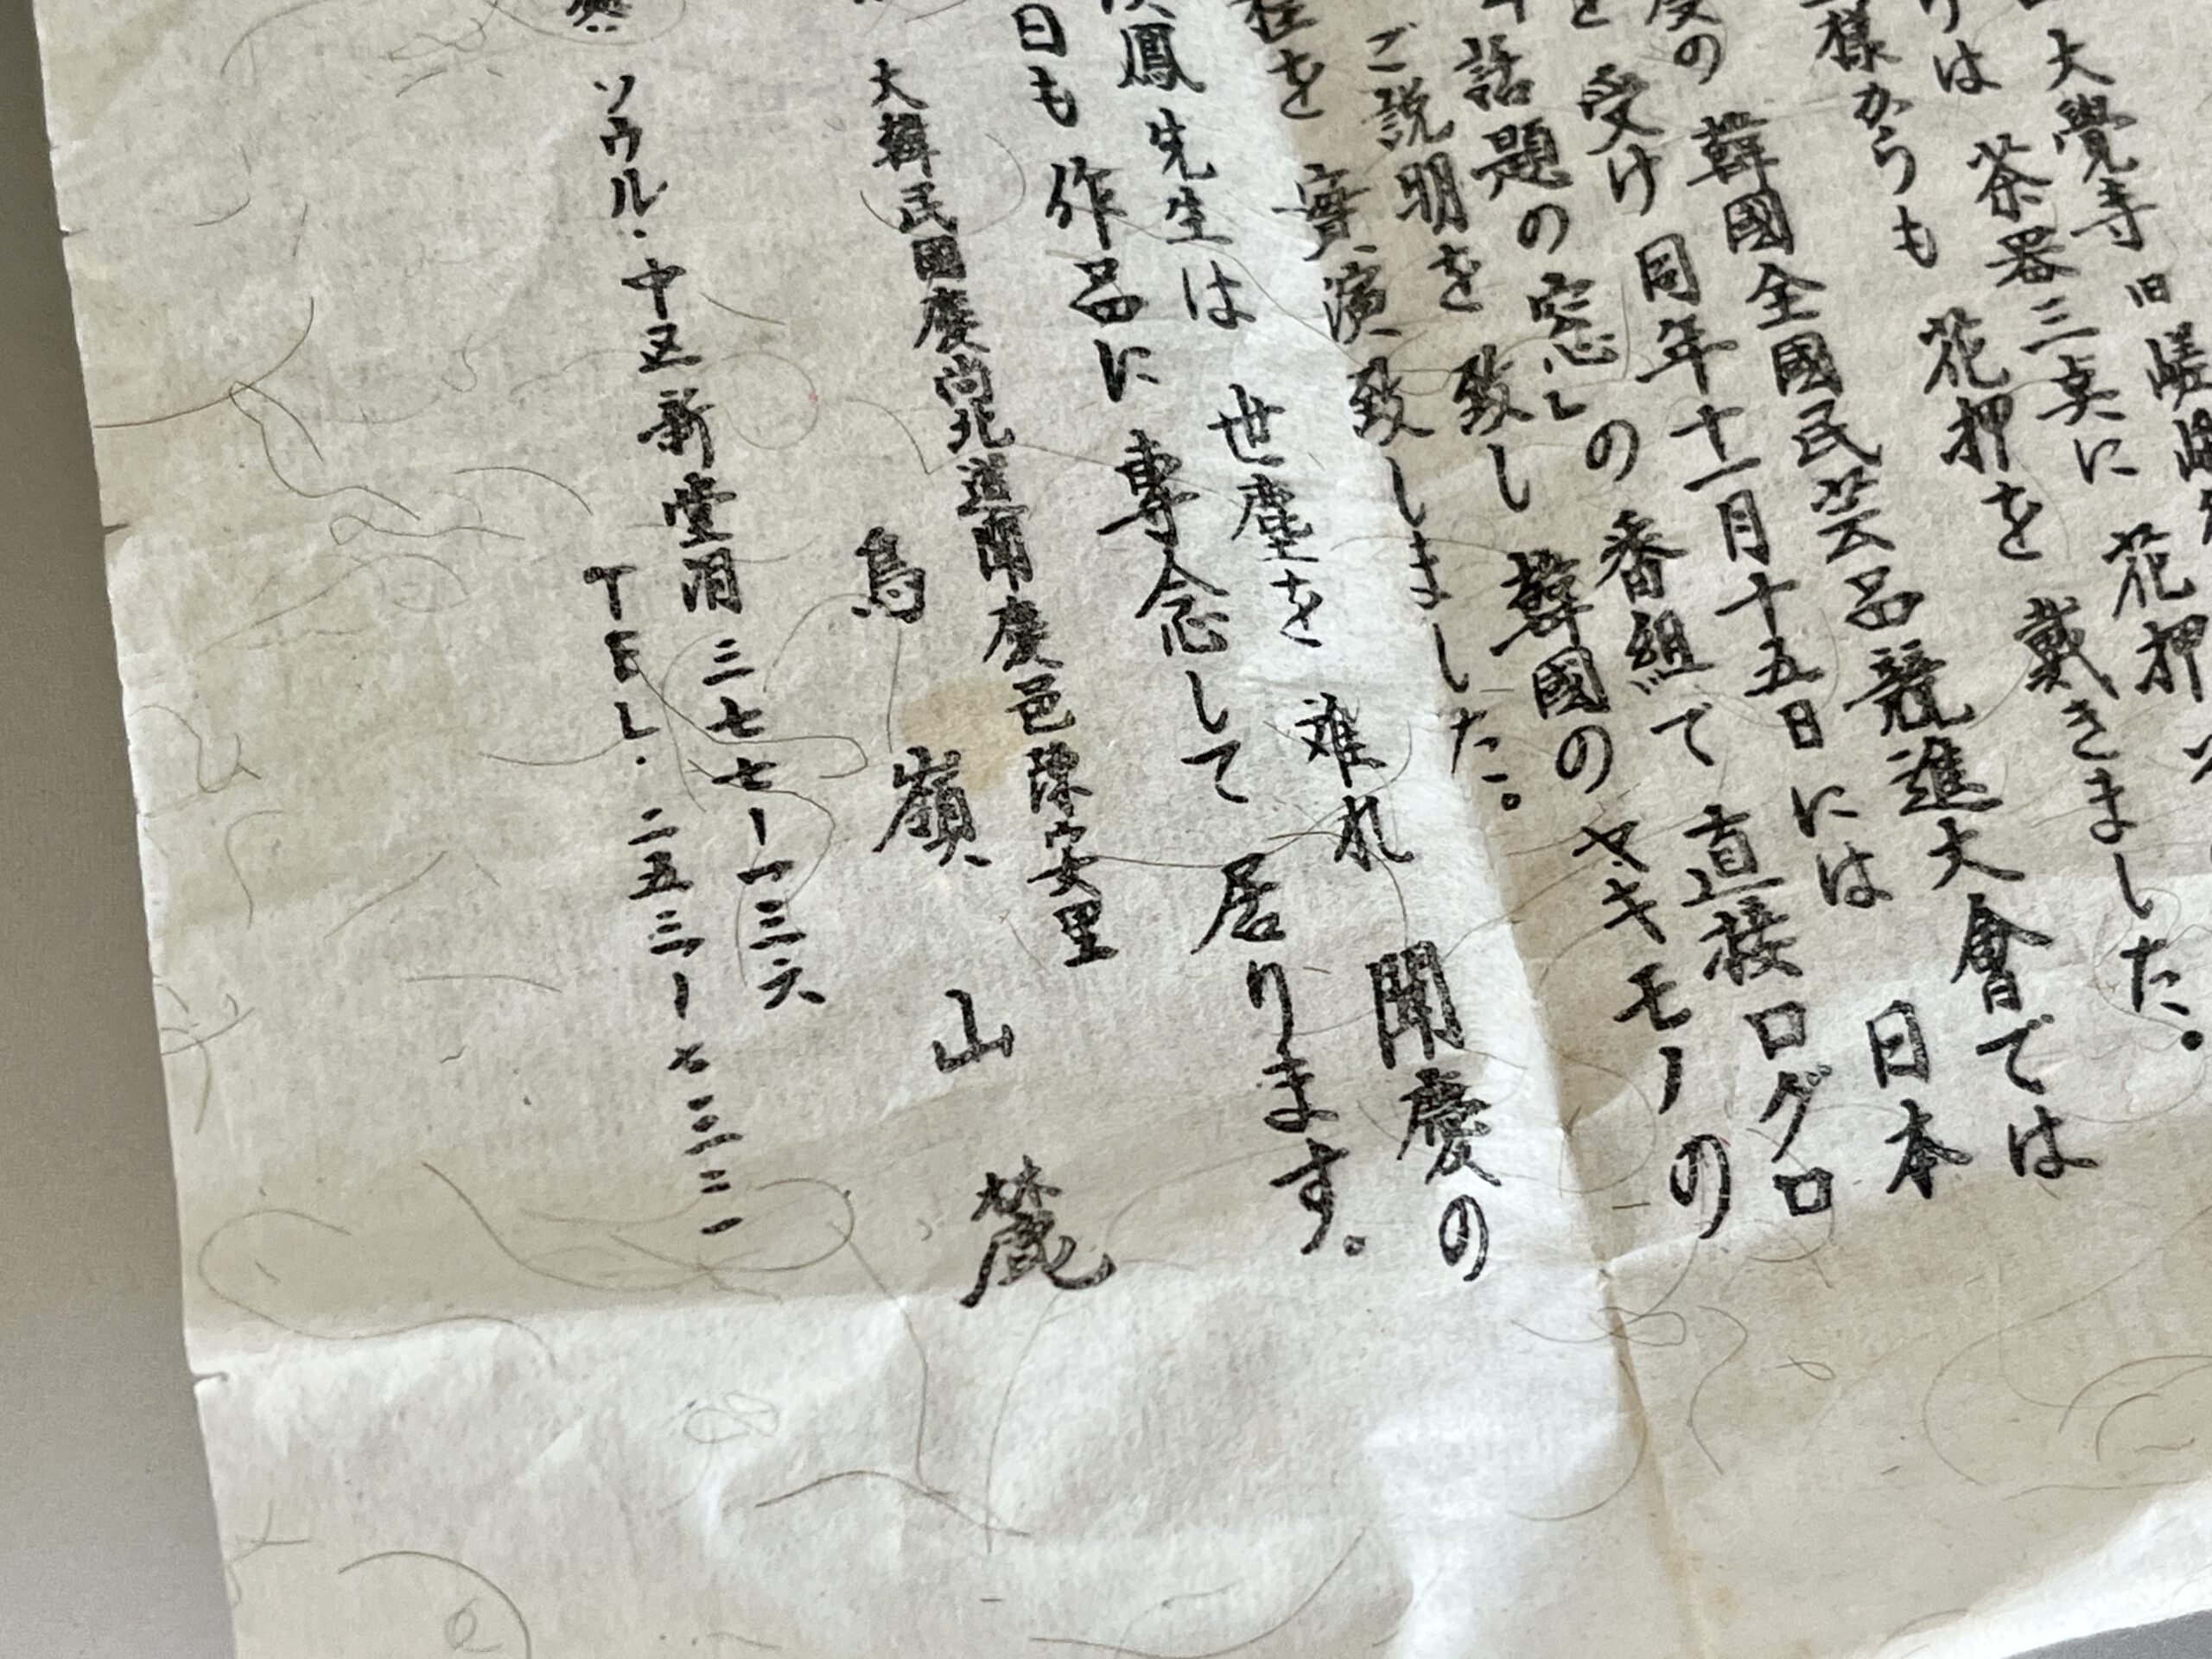 旧嵯峨
大覺寺
花押
は 茶器三点に 花押を 戴きました。
様からも
度の 韓國全國民芸品競進大會では
受け 同年十一月十五日には 日本
話題の窓」の 番組で 直接ロクロ
ご説明を 致し 韓國の ヤキモノの
程を 實演致しました。
鳳 先生は 世塵を 難れ 聞慶の
日も 作品に 專念して 居ります。
大韓民国慶尚北道聞慶邑陳安里
鳥 嶺 山 麓
ソウル・中区新堂洞 三七七ー一三六
TEL. 二五三ー七三二一